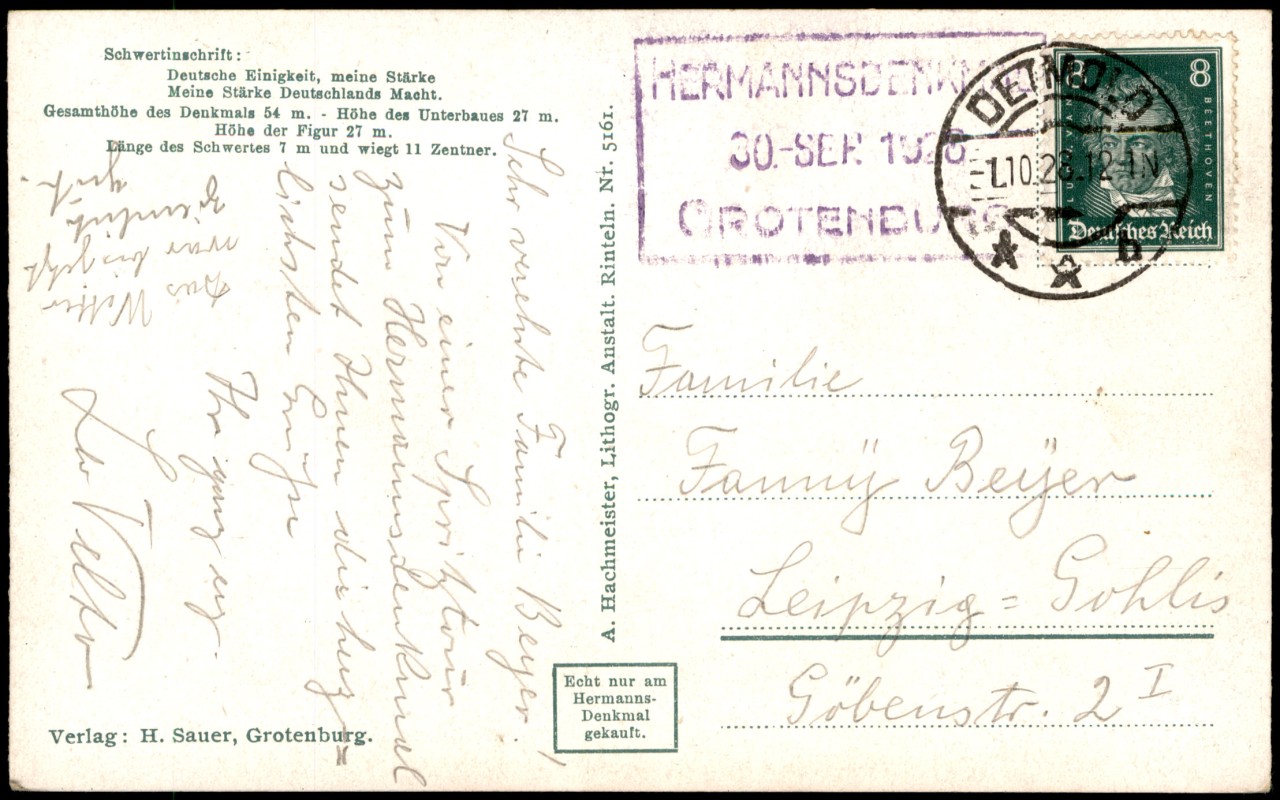 Schwertinschrift:
Deutsche Einigkeit, meine Stärke
Meine Stärke Deutschlands Macht.
Gesamthöhe des Denkmals 54 m. - Höhe des Unterbaues 27 m.
Höhe der Figur 27 m.
Länge des Schwertes 7 m und wiegt 11 Zentner.
Sehr verehrte Familie Beyer!
Von einer Spritztour
zum Hermannsdenkmal
sendet Ihnen die herz=
lichsten Grüße
Ihr ganz erg.
Das Wetter
war bis jetzt
ziemlich
gut.
Verlag: H. Sauer, Grotenburg.
A. Hachmeister, Lithogr. Anstalt. Rinteln. Nr. 5161.
Echt nur am
Hermanns-
Denkmal
gekauft.
HERMANNSDENKMAL
30.-SEP. 1928
GROTENBURG
DETMOLD
-1.10.28.12-1N
b
8 8
LUDW. VAN BEETHOVEN
Deutsches Reich
Familie
Fannÿ Beÿer
Leipzig=Gohlis
Göbenstr. 2 I